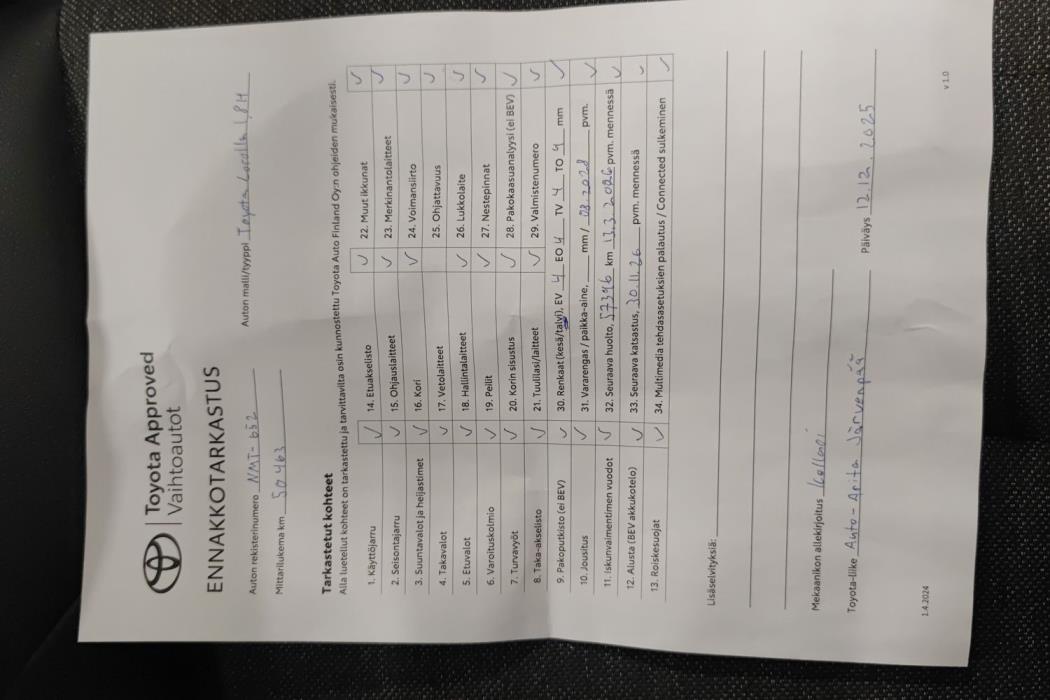 Toyota Approved
Vaihtoautot
ENNAKKOTARKASTUS
Auton rekisterinumero NMT-652 Auton malli/tyyppi Toyota Corolla 1,8H
Mittarilukema km 50463
Tarkastetut kohteet
Alla luetellut kohteet on tarkastettu ja tarvittavilta osin kunnostettu Toyota Auto Finland Oy:n ohjeiden mukaisesti.
1. Käyttöjarru ✓ 14. Etuakselisto ✓ 22. Muut ikkunat ✓
2. Seisontajarru ✓ 15. Ohjauslaitteet ✓ 23. Merkinantolaitteet ✓
3. Suuntavalot ja heijastimet ✓ 16. Kori ✓ 24. Voimansiirto ✓
4. Takavalot ✓ 17. Vetolaitteet 25. Ohjattavuus ✓
5. Etuvalot ✓ 18. Hallintalaitteet ✓ 26. Lukkolaite ✓
6. Varoituskolmio ✓ 19. Peilit ✓ 27. Nestepinnat ✓
7. Turvavyöt ✓ 20. Korin sisustus ✓ 28. Pakokaasuanalyysi (ei BEV) ✓
8. Taka-akselisto ✓ 21. Tuulilasi/laitteet ✓ 29. Valmistenumero ✓
9. Pakoputkisto (ei BEV) ✓ 30. Renkaat (kesä/talvi), EV 4 EO 4 TV 4 TO 4 mm ✓
10. Jousitus ✓ 31. Vararengas / paikka-aine, mm / 08.2028 pvm. ✓
11. Iskunvaimentimen vuodot ✓ 32. Seuraava huolto, 57346 km 13.3 2026 pvm. mennessä ✓
12. Alusta (BEV akkukotelo) ✓ 33. Seuraava katsastus, 30.11.26 pvm. mennessä ✓
13. Roiskesuojat ✓ 34. Multimedia tehdasasetuksien palautus / Connected sulkeminen ✓
Lisäselvityksiä:
Mekaanikon allekirjoitus
Toyota-liike Auto-Arita Järvenpää Päiväys 12.12.2025
1.4.2024 v 1.0